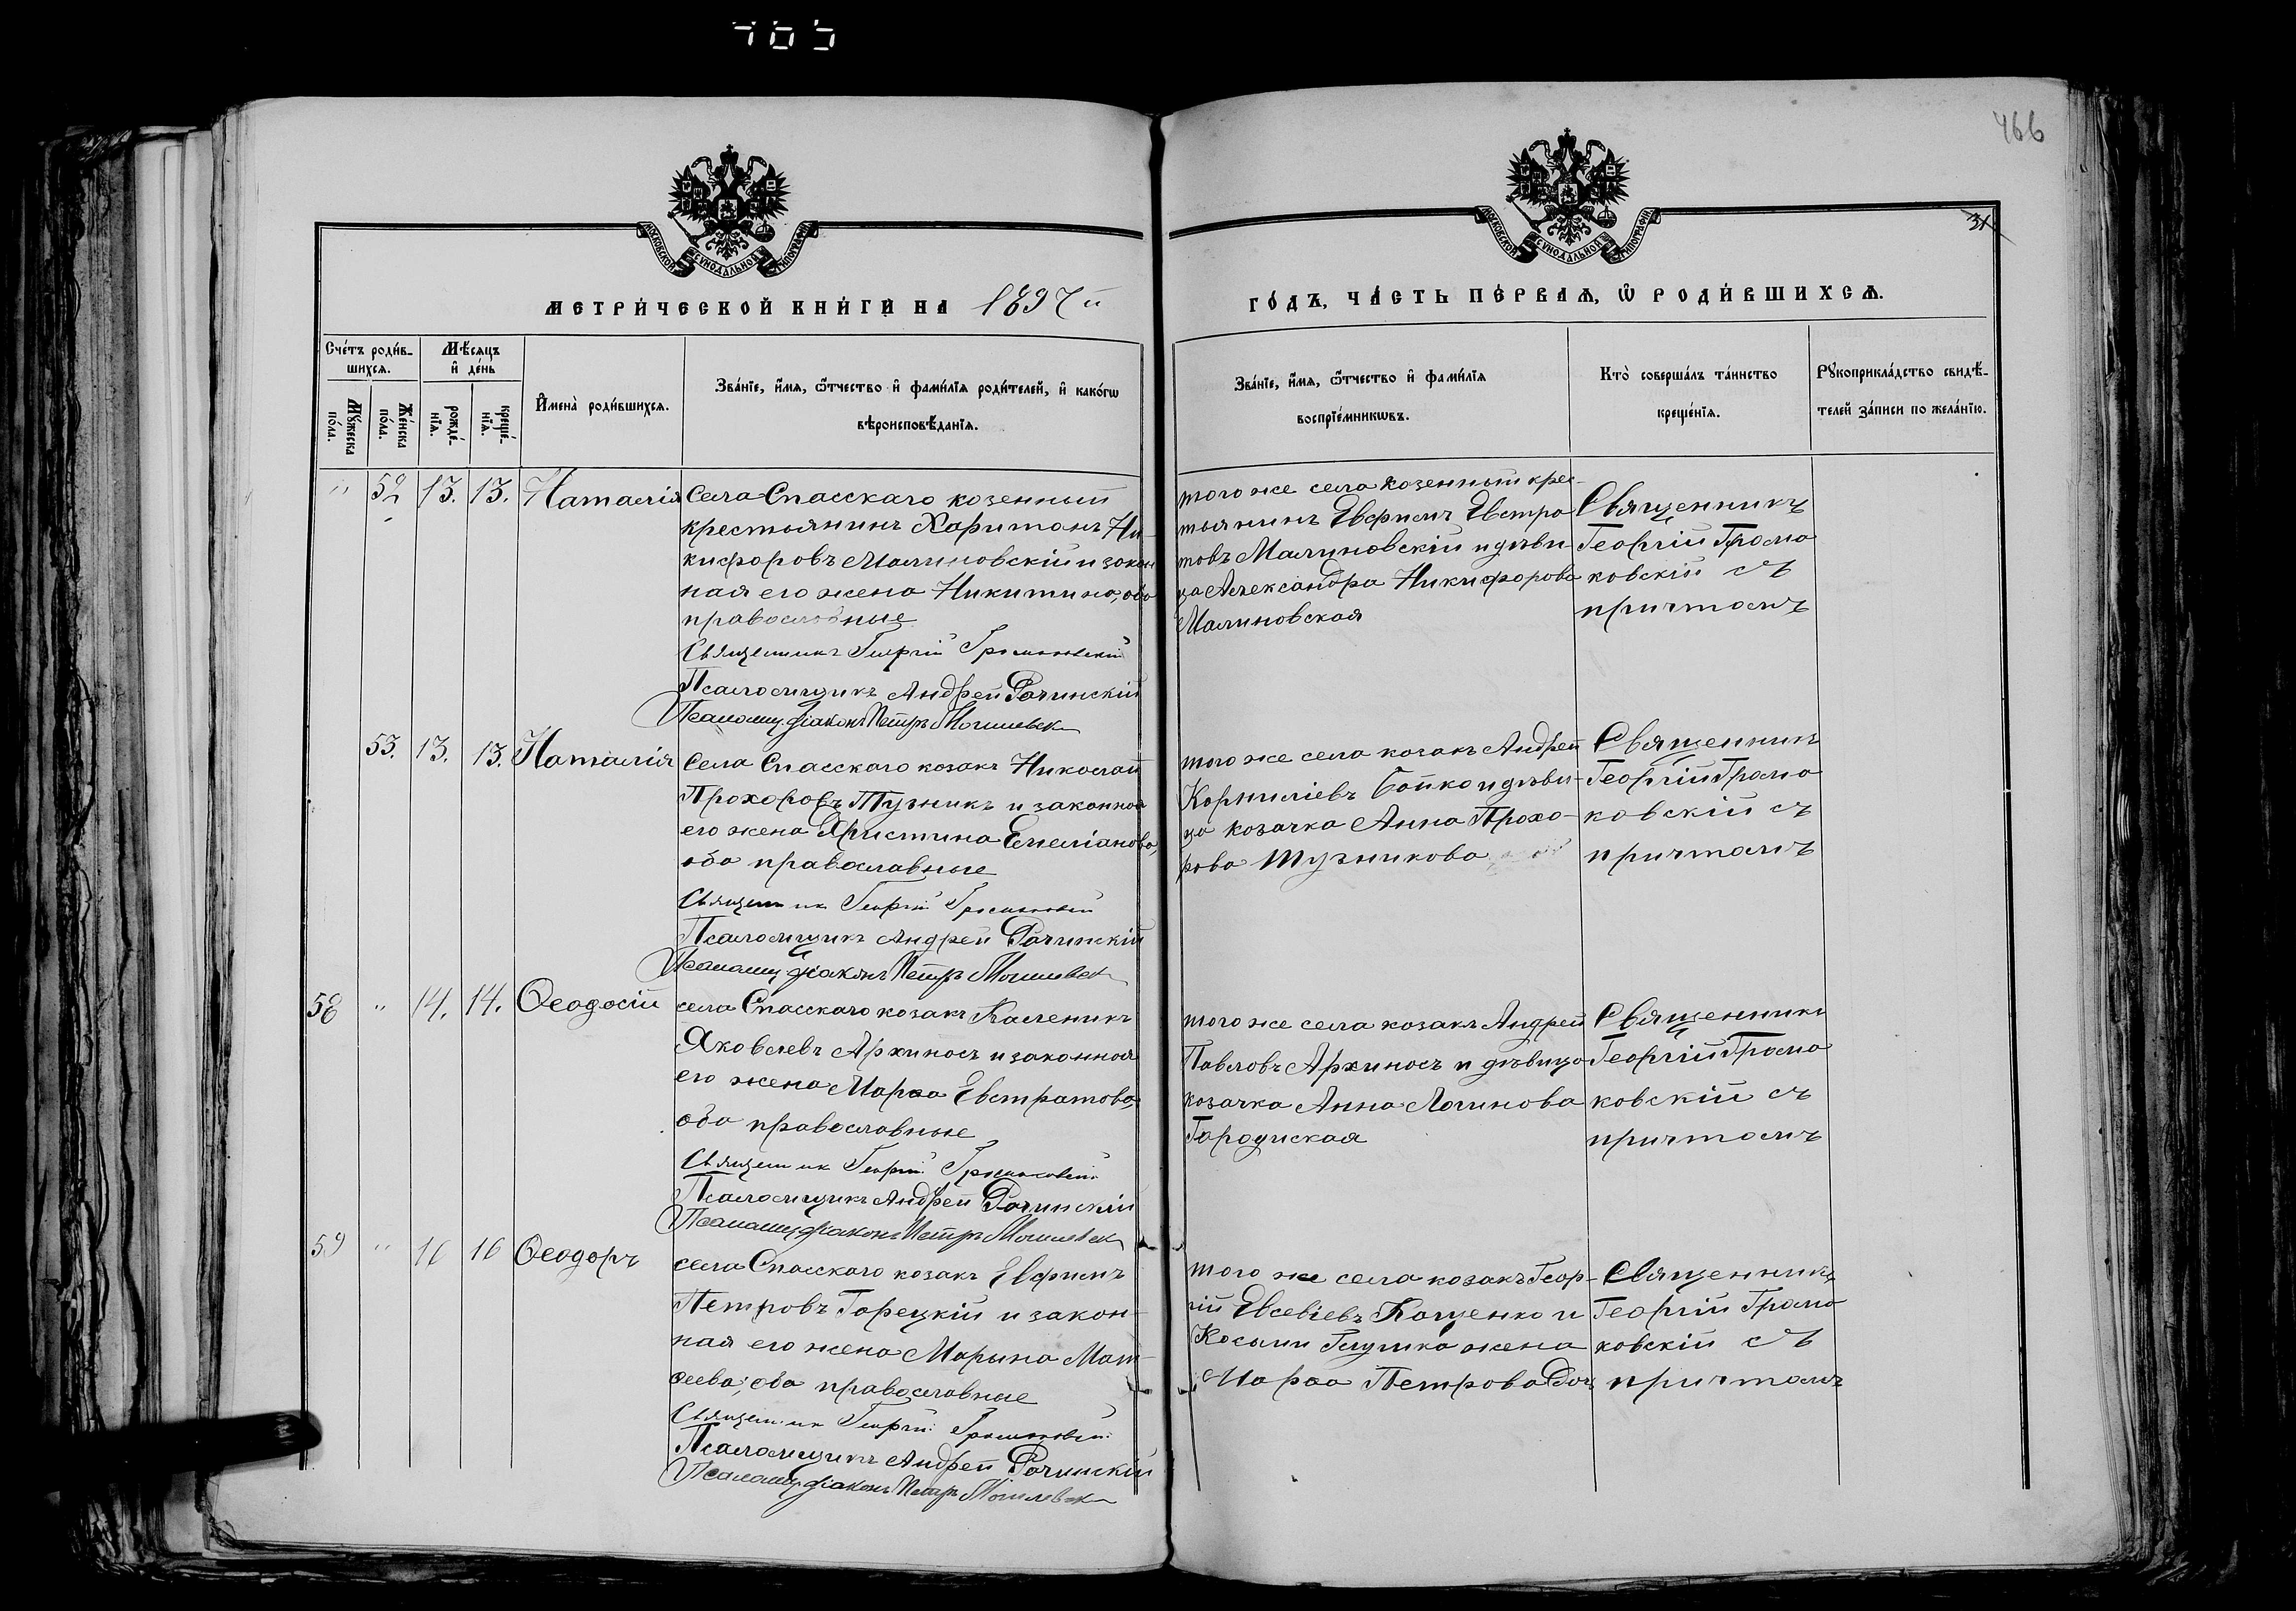 465
466
31
МОСКОВСКОЙ СѴНОДАЛЬНОЙ ТИПОГРАФІИ
МОСКОВСКОЙ СѴНОДАЛЬНОЙ ТИПОГРАФІИ
МЕТРИ́ЧЕСКОЙ КНИ́ГИ НА 1897 й
ГО́ДЪ, ЧА́СТЬ ПЕ́РВАѦ, Ѽ РОДИ́ВШИХСѦ.
Сче́тъ роди́в-
шихсѧ.
Мѣ́сяцъ
и҆ де́нь
Мꙋ́жеска по́ла.
Же́нска по́ла.
рожде́-нїѧ.
креще́-нїѧ.
И҆мена̀ роди́вшихсѧ.
Зва́нїе, и҆́мѧ, ѻ҆́тчество и҆ фами́лїѧ роди́телей, и҆ како́гѡ
вѣроисповѣ́данїѧ.
Зва́нїе, и҆́мѧ, ѻ҆́тчество и҆ фами́лїѧ
воспрїе́мникѡвъ.
Кто̀ соверша́лъ та́инство
креще́нїѧ.
Рꙋкоприкла́дство свидѣ́-
телей за́писи по жела́нїю.
" 52 13. 13. Наталія
Села Спасскаго козенный
крестьянинъ Харитонъ Ни-
кифоровъ Малиновскій и закон
ная его жена Никитина, оба
православные
Священникъ Георгій Громаковскій
Псаломщикъ Андрей Рачинскій
Псаломщ. діаконъ Петръ Могилевск
того же села козенный крес-
тьянинъ Евфимъ Евстра
товъ Малиновскій и дѣви
ца Александра Никифорова
Малиновская
Священникъ
Георгій Грома
ковскій съ
причтомъ
53. 13. 13. Наталія
Села Спасскаго козакъ Николай
Прохоровъ Тузникъ и законная
его жена Христина Емеліанова,
оба православные
Священник Георгій Громаковскій
Псаломщикъ Андрей Рачинскій
Псаломщ. діаконъ Петръ Могилевск
того же села козакъ Андрей
Корниліевъ Бойко и дѣви-
ца козачка Анна Прохо-
рова Тузникова
Священникъ
Георгій Грома
ковскій съ
причтомъ
58 " 14. 14. Ѳеодосій
села Спасскаго козакъ Каленикъ
Яковлевъ Архиносъ и законная
его жена Марѳа Евстратова,
оба православные
Священник Георгій Громаковскій
Псаломщикъ Андрей Рачинскій
Псаломщ. діаконъ Петръ Могилевск
того же села козакъ Андрей
Павловъ Архиносъ и дѣвица
козачка Анна Логинова
Городиская
Священникъ
Георгій Грома
ковскій съ
причтомъ
59 " 16 16 Ѳеодоръ
села Спасскаго козакъ Евфимъ
Петровъ Горецкій и закон-
ная его жена Марына Мат-
ѳеева; оба православные
Священник Георгій Громаковскій
Псаломщикъ Андрей Рачинскій
Псаломщ. діаконъ Петръ Могилевск
того же села козакъ Геор-
гій Евсевіевъ Кощенко и
Косьми Глушка жена
Марѳа Петрова Доч
Священникъ
Георгій Грома
ковскій съ
причтомъ